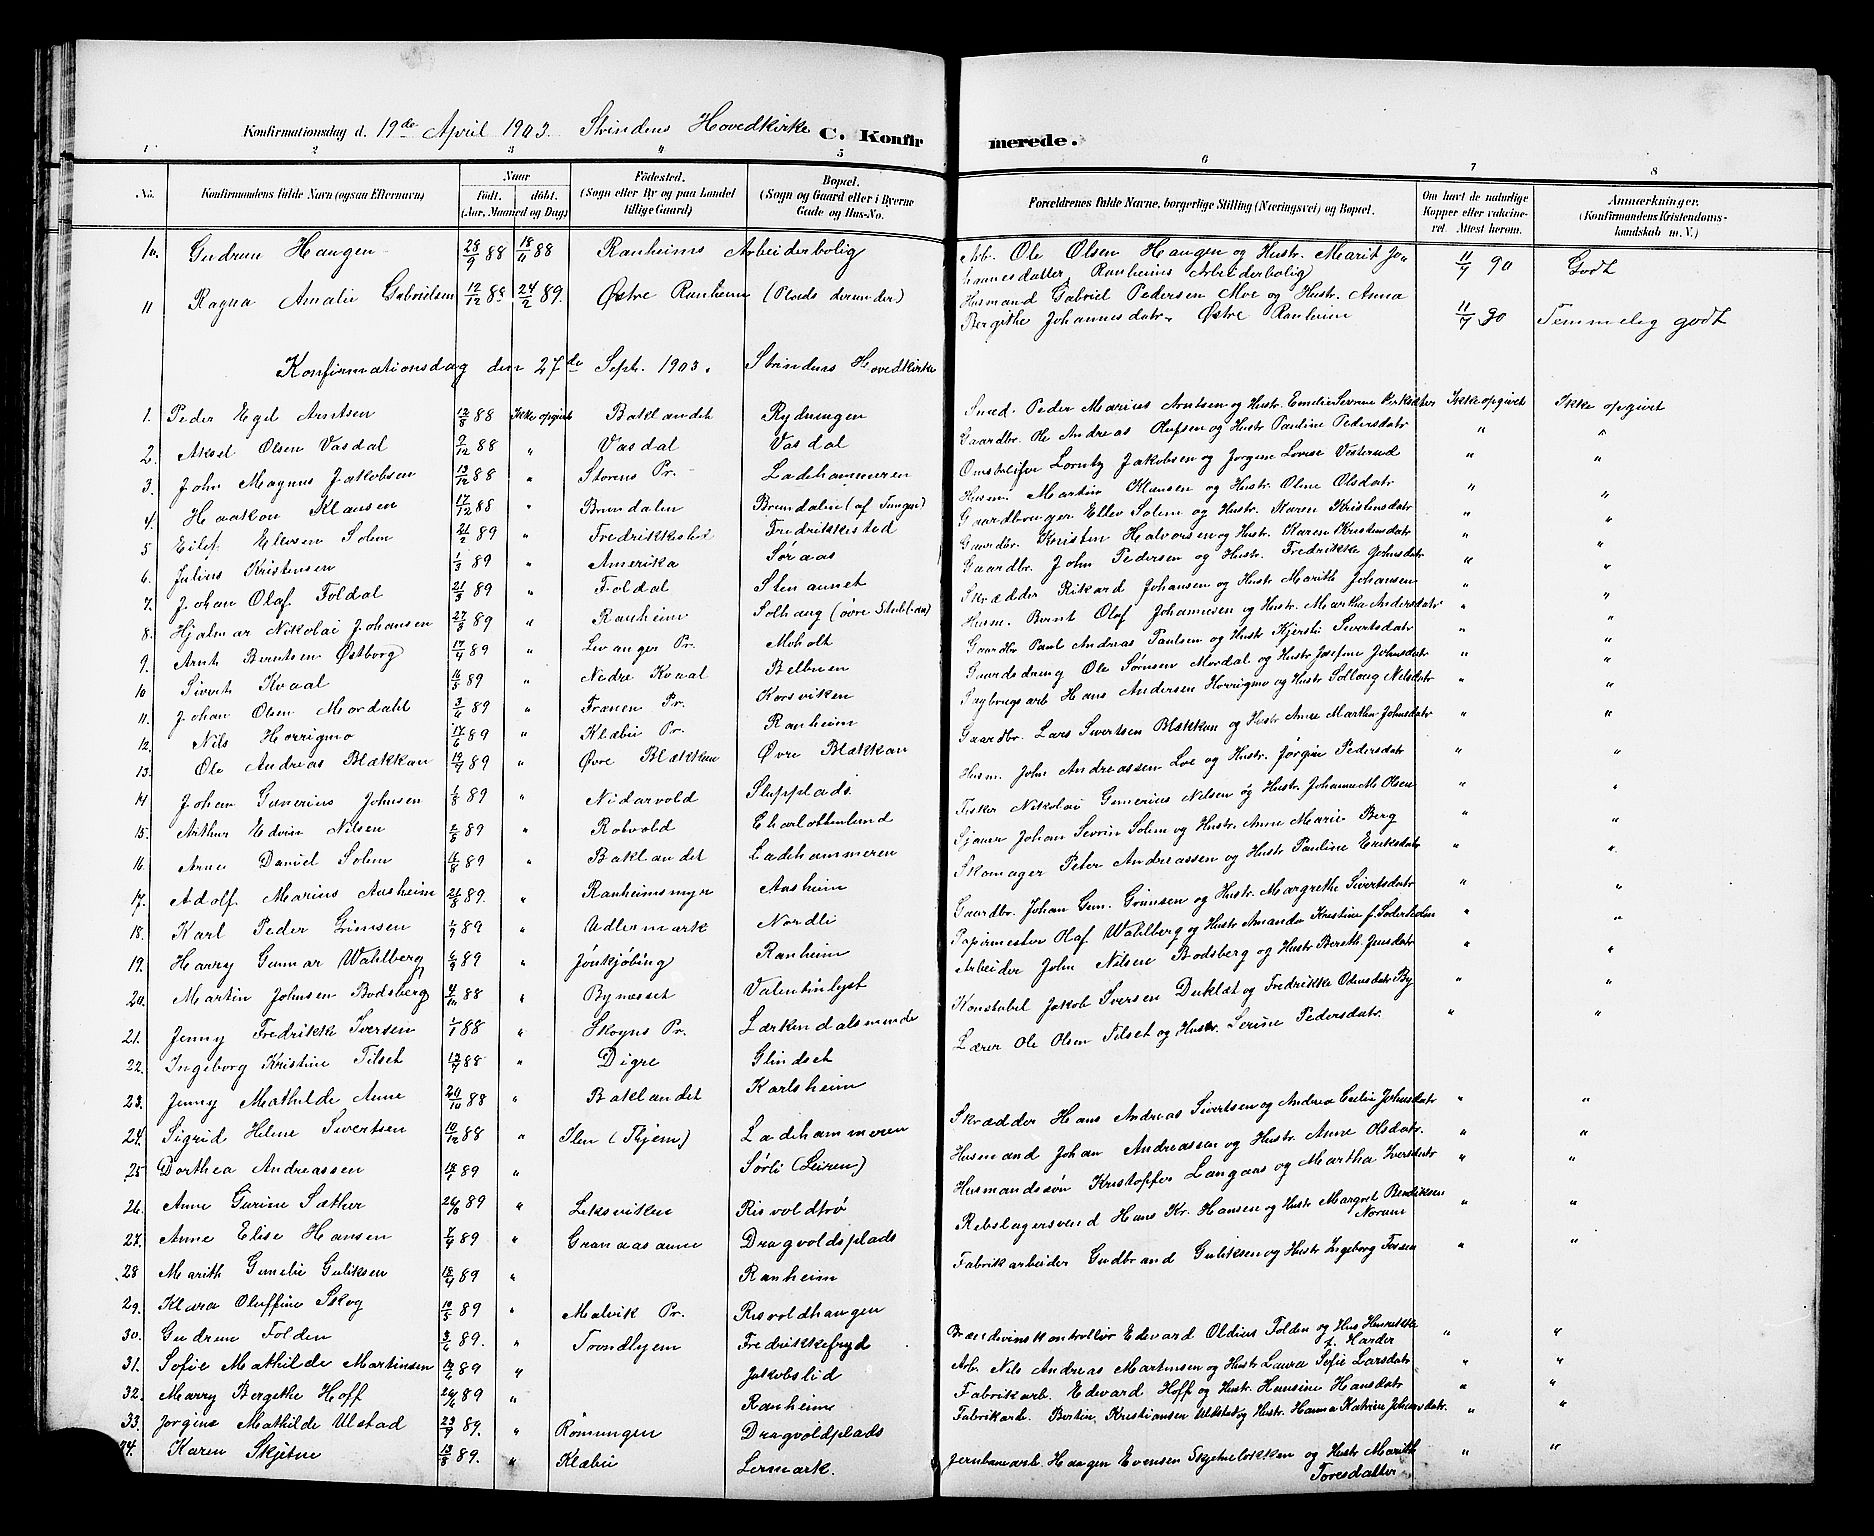 Konfirmationsdag d. 19de April 1903. Strindens Hovedkirke C. Konfirmerede.
1 2 3 4 5 6 7 8
No. Konfirmandens fulde Navn (ogsaa Efternavn) Naar født. døbt. (Aar, Maaned og Dag) Fødested. (Sogn eller By og paa Landet tillige Gaard) Bopæl. (Sogn og Gaard eller i Byerne Gade og Hus-No. Forældrenes fulde Navne, borgerlige Stilling (Næringsvei) og Bopæl. Om havt de naturlige Kopper eller vaccineret. Attest herom. Anmærkninger. (Konfirmandens Kristendomskundskab m. V.)
10. Gudrun Haugen 28/9 88 18/11 88 Ranheims Arbeiderbolig Arb. Ole Olsen Haugen og Hustr. Marit Johannesdatter Ranheims Arbeiderbolig 11/7 90 Godt
11 Ragna Amalie Gabrielsen 12/12 88 24/2 89. Østre Ranheim (Plads derunder) Husmand Gabriel Pedersen Moe og Hustr. Anna Bergithe Johannesdatr. Østre Ranheim 11/7 90 Temmelig godt
Konfirmationsdag den 27de Sept. 1903. Strindens Hovedkirke
1. Peder Egel Arntsen 12/8 88 Ikke opgivet Baklandet Rydningen Smed. Peder Marius Arntsen og Hustr. Emilie Ikke opgivet Ikke opgivet
2. Aksel Olsen Vasdal 9/12 88 " Vasdal Vasdal Gaardbr. Ole Andreas Olufsen og Hustr Pauline Pedersdatr " "
3. John Magnus Jakobsen 13/12 88 " Storens Pr. Ladehammeren Jakobsen og Jørgine Lovise " "
4. Haakon Klausen 17/12 88 " Brundalen Brundalen (af Tungen) Husm. Martin Klausen og Hustr. Oline Olsdatr " "
5 Eilif Ellevsen Solem 21/2 89 " Fredrikkested Gaardbruger Ellev Solem og Hustr. Karen Kristensdatr " "
6. Julius Kristensen 1/3 89 " Amerika Søraas Gaardbr. Kristen Halvorsen og Hustr. Karen Kristensdatr " "
7. Johan Olaf Foldal 21/3 89 " Foldal Stenaunet Gaardbr. John Pedersen og Hustr. Fredrikke Johnsdatr " "
8. Hjalmar Nikolai Johansen 27/3 89 " Ranheim Solhaug (øvre Skrædder Rikard Johansen og Hustr Marith Johansen " "
9. Arnt Berntsen Østborg 17/4 89 " Levanger Pr. Moholt Husm. Bernt Olaf Johannesen og Hustr. Martha Andersdatr " "
10 Sivert Kvaal 16/5 89 " Nedre Kvaal Gaardbr Paul Andreas Paulsen og Hustr Kjersti Sivertsdatr " "
11. Johan Olsen Mordahl 3/6 89 " Frænen Pr. Korsviken Gaardsdreng Ole Sørnsen Mordal og Hustr Josefine Johnsdatr " "
12. Nils Horrigmo 17/6 89 " Klæbu Pr. Ranheim Hans Andersen Horrigmo og Hustr Solloug Nilsdatr " "
13. Ole Andreas Blækkan 19/7 89 " Øvre Blækkan Øvre Blækkan Gaardbr. Lars Sivertsen Blækkan og Hustr Anne Martha Johnsdatr " "
14 Johan Gunerius Johnsen 1/8 89 " Nidarvold Slupplads. Husm. John Andreassen Loe og Hustr. Jørgine Pedersdatr " "
15. Arthur Edvin Nilsen 2/8 89 " Rotvold Charlottenlund Fisker Nikolai Gunerius Nilsen og Hustr. Johanne M. Olsen " "
16. Arne Daniel Solem 16/8 89 " Baklandet Ladehammeren Sjauer Johan Sevrin Solem og Hustr. Anne Marie Berg " "
17. Adolf Marius Aasheim 21/8 89. " Ranheimsmyr Aasheim Skomager Peter Andreassen og Hustr Pauline Eriksdatr " "
18. Karl Peder Grimsen 1/9 89 " Udlermark Nordli Gaardbr. Johan Gun. Grimsen og Hustr. Margrethe Sivertsdatr " "
19. Harry Gunnar Wahlberg 6/9 89 " Jönkjöbing Ranheim Papirmester Olaf Wahlberg og Hustr Amanda Kristine f. " "
20. Martin Johnsen Bodsberg 4/12 88 " Bynesset Valentinlyst Arbeider John Nilsen Bodsberg og Hustr Bereth Jensdatr " "
21. Jenny Fredrikke Iversen 1/1 88 " Skogns Pr. Lærkendalsminde Konstabel Jakob Iversen Duklæt og Fredrikke Odinsdatr By " "
22. Ingeborg Kristine Tilset 13/7 88 " Digre Glindset Lærer Ole Olsen Tilset og Hustr. Serine Pedersdatr. " "
23. Jenny Mathilde Anne 20/10 88 " Baklandet Karlsheim
24. Sigrid Helene Sivertsen 10/12 88 " Ilen (Thjem) Ladehammeren Skrædder Hans Andreas Sivertsen og Andrea Johnsdatr " "
25 Dorthea Andreassen 18/1 89 " Sørli (Leiren) Husmand Johan Andreassen og Hustr. Anne Olsdatr. " "
26. Anne Gurine Sæther 26/3 89 " Leksviken Risvoldtrø Husmandssøn Kristoffer Langaas og Martha Iversdatr " "
27. Anne Elise Hansen 7/4 89 " Granaasaune Dragvoldsplads Rebslagersvend Hans Kr. Hansen og Hustr Margret Bendiksen Norum " "
28 Marith Gunelie Guliksen 18/4 89 " Ranheim Fabrikarbeider Gudbrand Guliksen og Hustr Ingeborg Tossen " "
29. Klara Oluffine Skog 10/5 89 " Malvik Pr. Risvoldhaugen
30. Gudrun Folden 3/6 89. " Trondhjem Fredrikkefryd Brændevinskontrollør Edvard Oldius Folden og Hus Henrikke f. Harder " "
31. Sofie Mathilde Martinsen 12/6 89 " Jakobslid Arb. Nils Andreas Martinsen og Hustr Laura Sofie Larsdatr " "
32. Marry Bergithe Hoff 24/6 89 " Ranheim Fabrikarb. Edvard Hoff og Hustr. Hansine Hansdatr " "
33. Jørgine Mathilde Ulstad 23/7 89. " Rømungen Dragvoldplads Fabrikarb. Bertin Kristiansen Ulstad og Hustr. Hanna Katrine Johansdatr. " "
34. Karen Skjetne 13/8 89. " Klæbu Lermark. Jernbanearb. Haagen Evensen Skjetneløkken og Hustr Marith Toresdatter " "